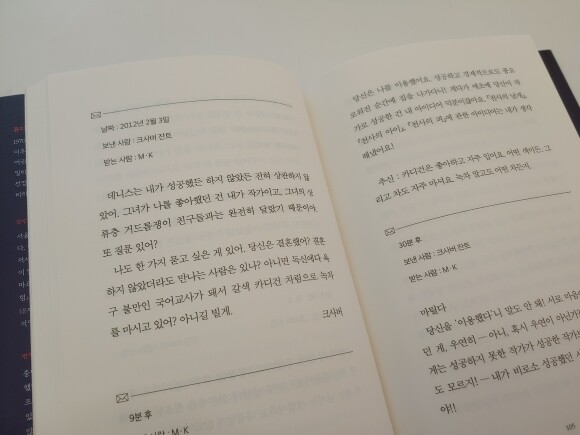 날짜 : 2012년 2월 3일
보낸 사람 : 크사버 잔트
받는 사람 : M·K
테니스는 내가 성공했든 하지 않았든 전혀 상관하지 않
았어. 그녀가 나를 좋아했던 건 내가 작가이고, 그녀의 상
류층 거드름쟁이 친구들과는 완전히 달랐기 때문이야.
또 질문 있어?
나도 한 가지 묻고 싶은 게 있어. 당신은 결혼했어? 결혼
하지 않았더라도 만나는 사람은 있나? 아니면 독신에다 욕
구 불만인 국어교사가 돼서 갈색 카디건 차림으로 녹차
를 마시고 있어? 아니길 빌게.
크사버
9분 후
사람 : M·K
당신은 나를 이용했어요. 성공하고 경제적으로도 풍요
로워진 순간에 집을 나가다니! 게다가 애초에 당신이 작
가로 성공한 건 내 아이디어 덕분이잖아요. 『천사의 날개』,
『천사의 아이』, 『천사의 피』에 관한 아이디어는 내가 생각
해냈어요!
추신 : 카디건은 좋아하고 자주 입어요. 어떤 색이든. 그
리고 차도 자주 마셔요. 녹차 말고도 어떤 차든지.
30분 후
보낸 사람 : 크사버 잔트
받는 사람 : M·K
마틸다
당신을 '이용했다'니 말도 안 돼! 서로 마음
던 게, 우연히 — 아니, 혹시 우연이 아닌가
게는 성공하지 못한 작가가 성공한 작가
도 모르지! — 내가 비로소 성공했던 시
야!!
105